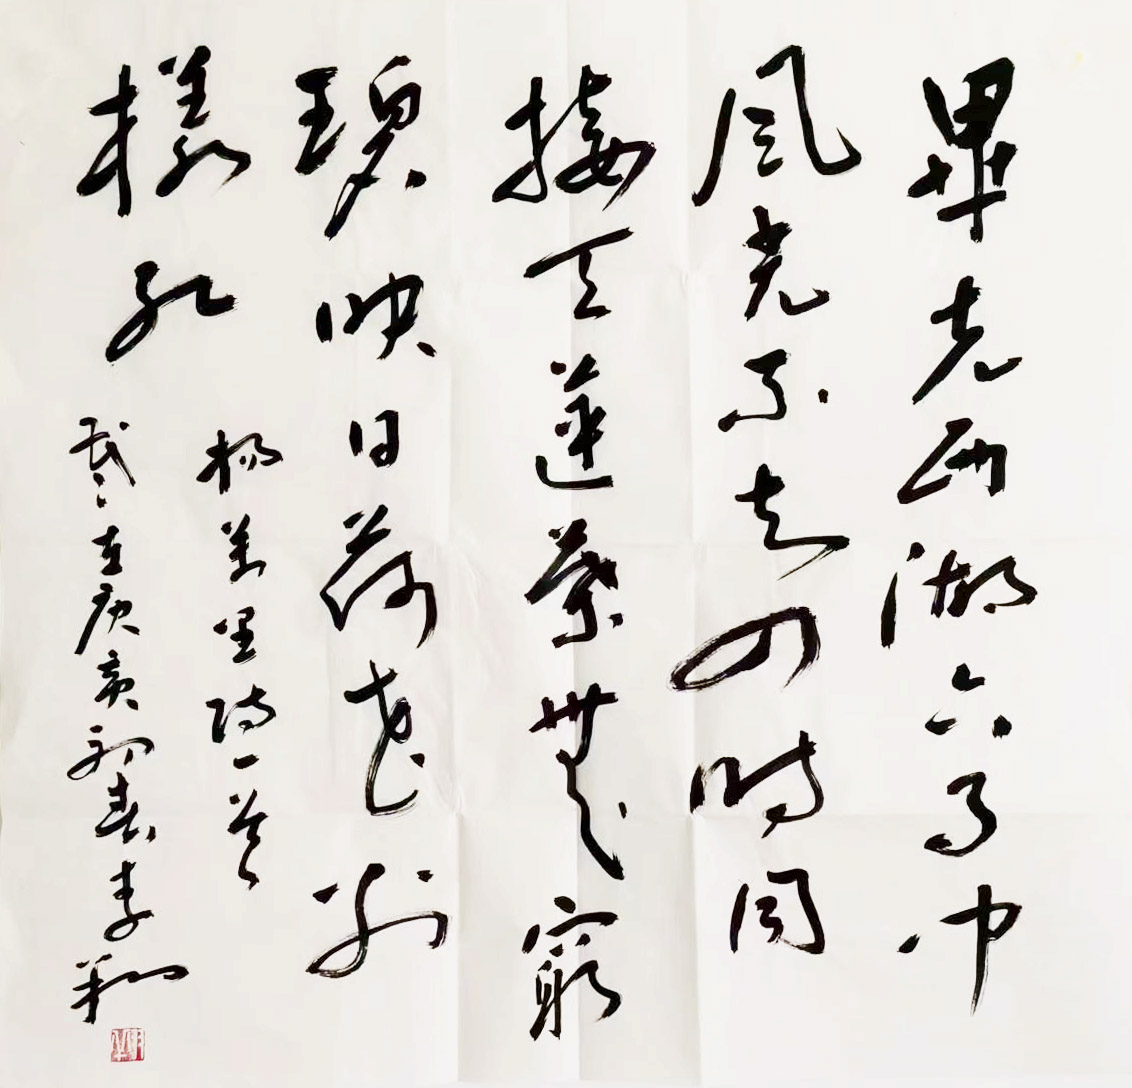 畢竟西湖六月中
風光不与四時同
接天蓮葉無窮
碧映日荷花別
樣紅
楊萬里詩一首
歲在庚寅春李